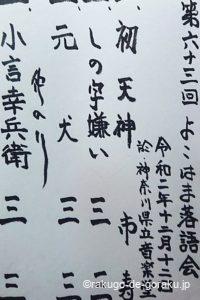 第六十三回 よこはま落語会
令和二年十二月十二
於・神奈川県立音楽
初天神 市寿
しの字嫌い 三三
元犬 三三
仲入り
小言幸兵衛 三三
©rakugo-de-goraku.jp